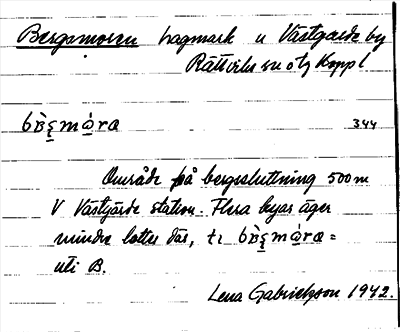 Bergamoren hagmark u Västgärde by
Rättviks sn o tg Koppl
344
Område på bergssluttning 500 m
V Västgärde station. Flera byar äger
mindre lotter där, ti
uti B.
Lena Gabrielsson 1942.